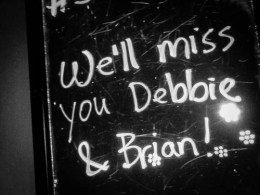 We'll miss
you Debbie
& Brian!